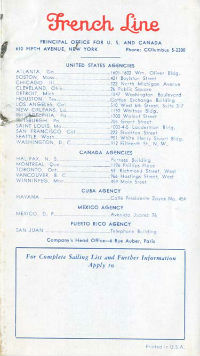 French Line
PRINCIPAL OFFICE FOR U. S. AND CANADA
610 FIFTH AVENUE, NEW YORK Phone: COlumbus 5-2300
UNITED STATES AGENCIES
ATLANTA, Ga. 1601-1602 Wm. Oliver Bldg.
BOSTON, Mass. 421 Boylston Street
CHICAGO, Ill. North Michigan Avenue
CLEVELAND, Ohio 26 Public Square
DETROIT, Mich. 1247 Washington Boulevard
HOUSTON, Tex. Cotton Exchange Building
LOS ANGELES, Cal. 510 West 6th Street, Suite
NEW ORLEANS, La. Whitney Bldg.
PHILADELPHIA, Pa. 1700 Walnut Street
PITTSBURGH, Pa. Grant Street
SAINT LOUIS, Mo. Louderman Bldg.
SAN FRANCISCO, Cal. Street
SEATTLE, Wash. White Bldg.
WASHINGTON, D. C. Street, N. W.
CANADA AGENCIES
HALIFAX, N. S. Furness Building
MONTREAL, Que. Phillips Place
TORONTO, Ont. Richmond Street, West
VANCOUVER, B. C. Hastings Street, West
WINNIPEG, Man. Main Street
CUBA AGENCY
HAVANA Calle Presidente Zayas No.
MEXICO AGENCY
MEXICO, D. F. Avenida Juarez
PUERTO RICO AGENCY
SAN JUAN Telephone Building
Company's Head Office—6 Rue Auber, Paris
For Complete Sailing List and Further Information
Apply to
Printed in U.S.A.